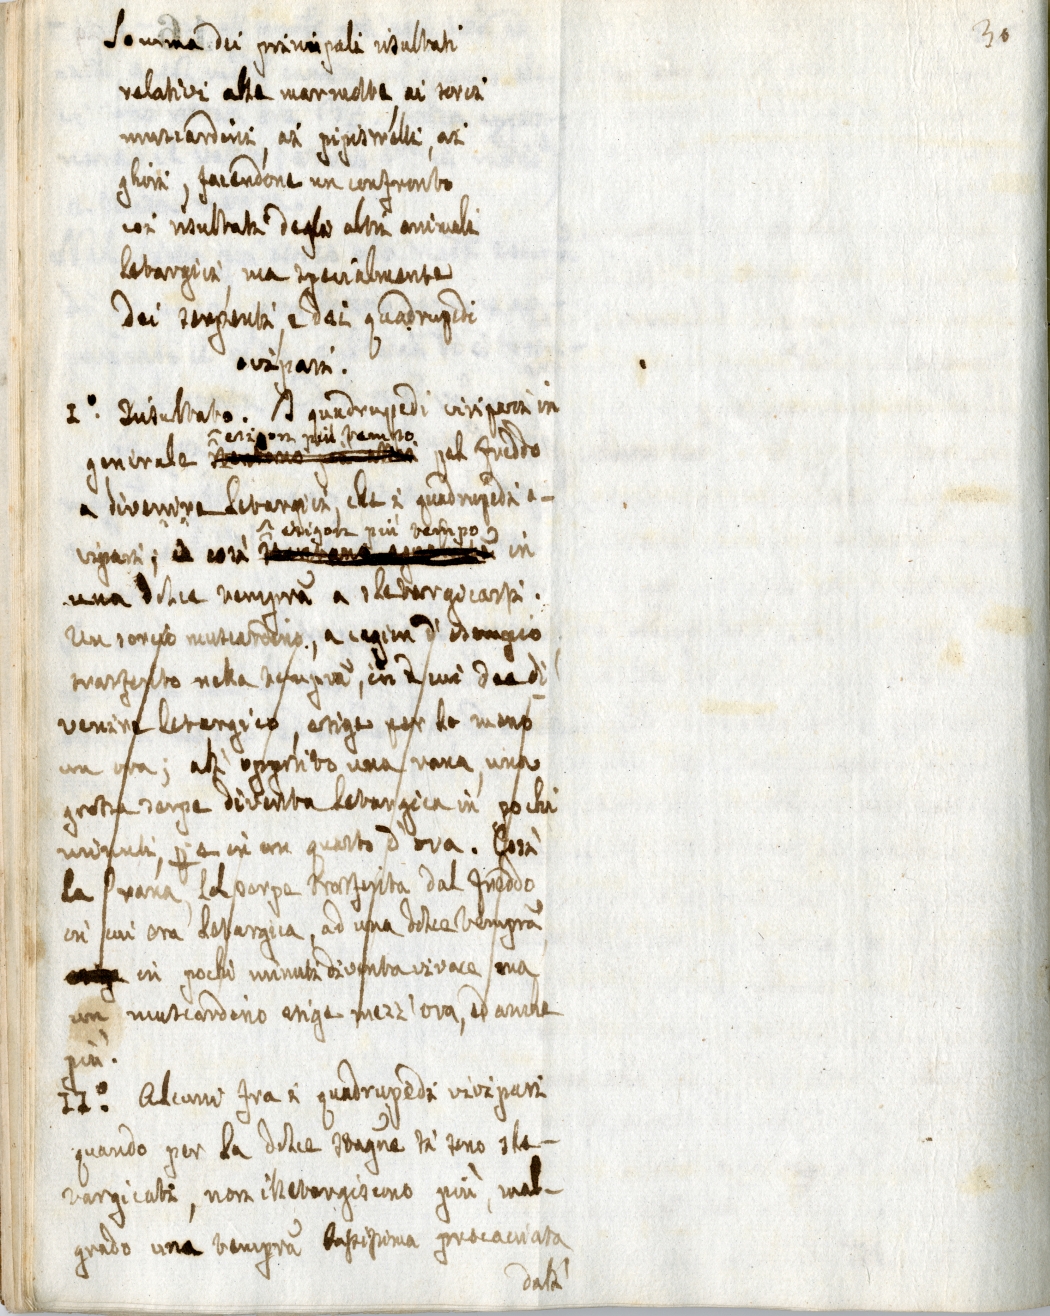 30
Somma dei principali risultati
relativi alle marmotte, ai sorci
muscardini, ai pipistrelli, ai
ghiri, facendone un confronto
coi risultati degli altri animali
letargici, ma specialmente
dei serpenti, e dei quadrupedi
ovipari.
I.° Risultato. I quadrupedi vivipari in
esigon più tempo
generale pel freddo
a divenire letargici, che i quadrupedi o-
esigon più tempo
vipari; e così in
una dolce tempra a sletargicarsi.
Un sorcio muscardino, a cagion d'esempio,
trasferito nella tempra, in cui dee di
venire letargico, esige per lo meno
un ora; all'opposito una rana, una
grossa serpe diventa letargica in pochi
minuti, e in un quarto d'ora. Così
la rana, la serpe trasferita dal freddo
in cui era letargica, ad una dolce tempra
in pochi minuti diventa vivace, ma
un muscardino esige mezz'ora, ed anche
più.
II.° Alcuni fra i quadrupedi vivipari
quando per la dolce stagne si sono sle-
targicati, non illetargiscono più, mal-
grado una tempra bassissima procacciata
dall'